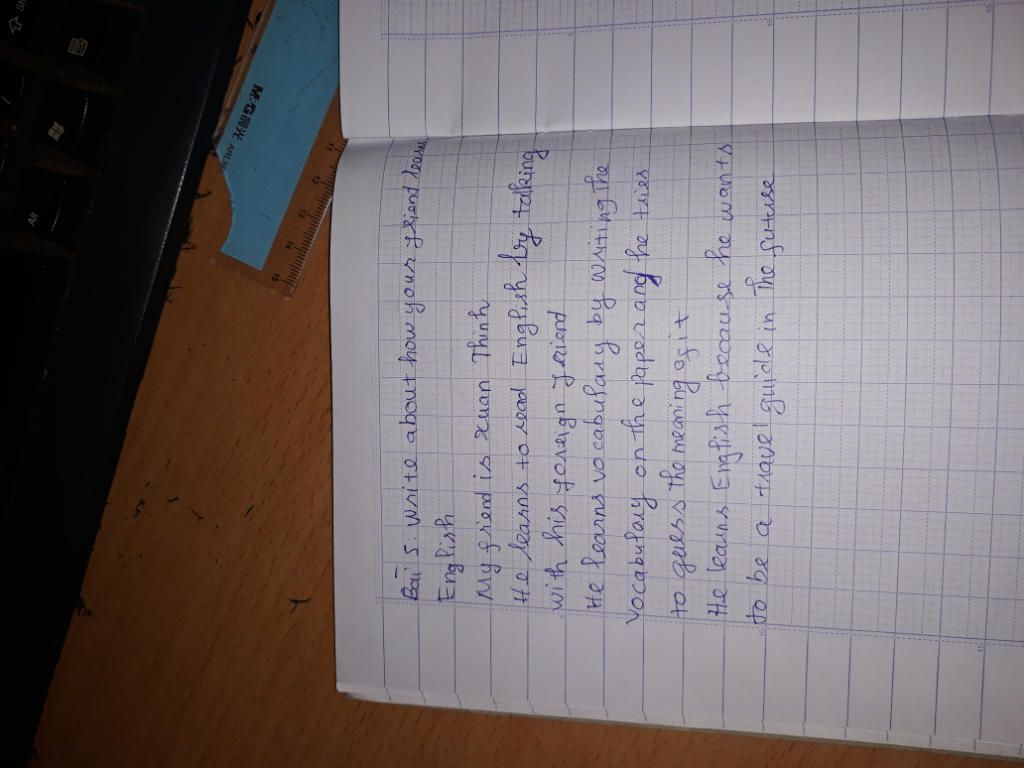 Bài 5: Write about how your friend learns
English
My friend is xuan Thinh
He learns to read English by talking
with his foreign friend
He learns vocabulary by writing the
vocabulary on the paper and he tries
to guess the meaning of it
He learns English because he wants
to be a travel guide in the future
M&G 晨光
Alt